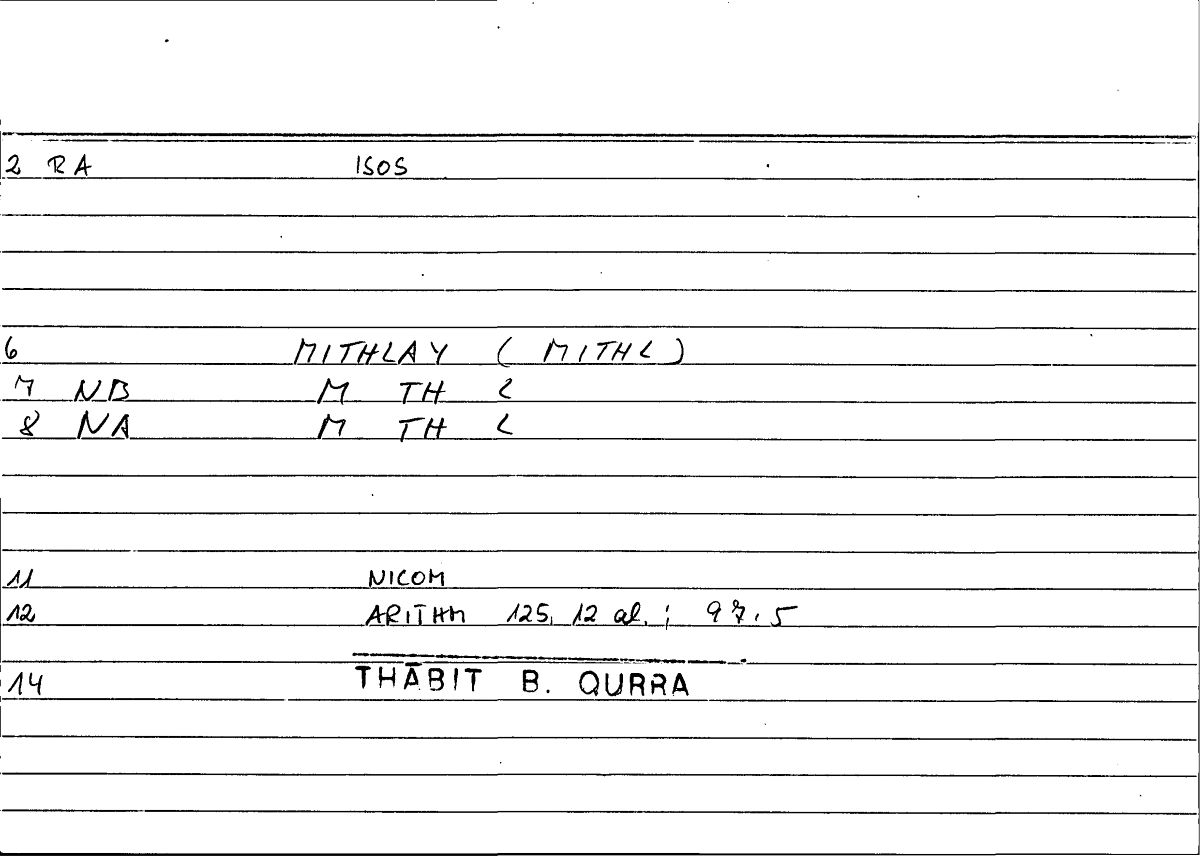 2 RA ISOS
6 MITHLAY ( MITHL )
7 NB M TH L
8 NA M TH L
11 NICOM
12 ARITHM 125, 12 al. ; 97.5
14 THĀBIT B. QURRA